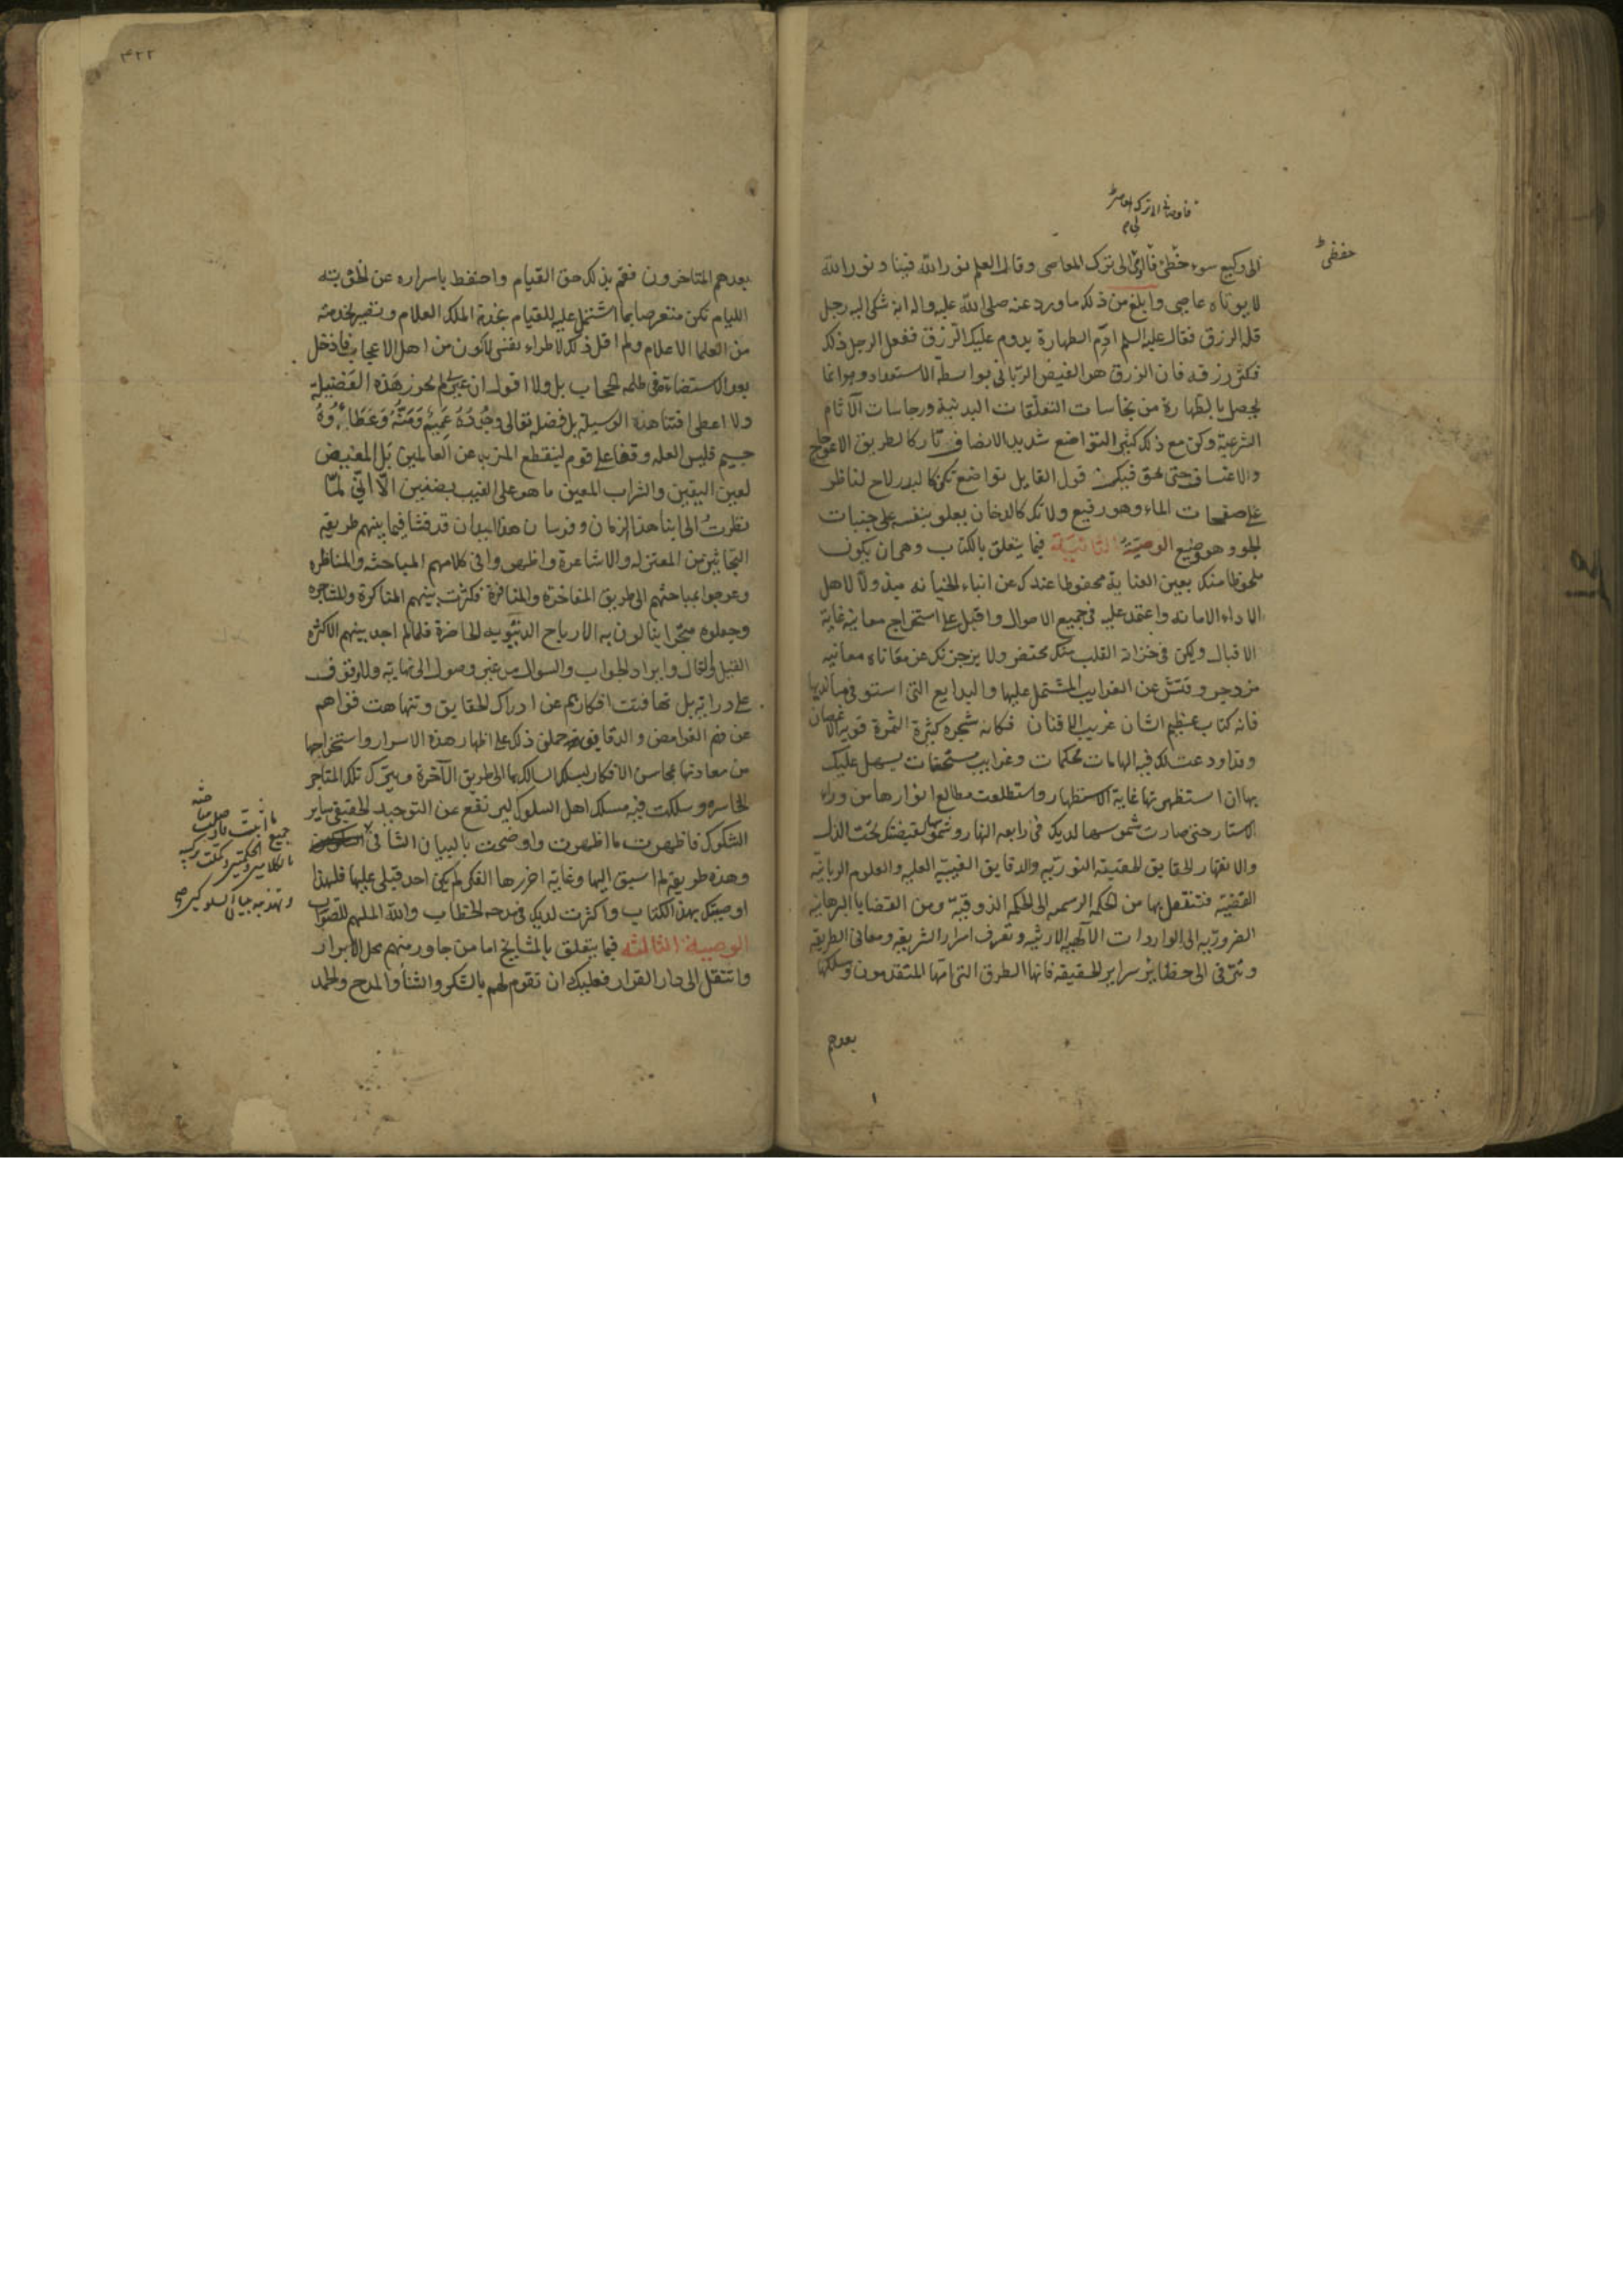 الى وكيع سوء حفظى فاومى الى ترك المعاصى وقال العلم نور الله فينا ونور الله
لا يوتاه عاصى وابلغ من ذلك ما ورد عنه صلى الله عليه واله انه شكى اليه رجل
قلة الرزق فقال عليه السلم ادم الطهارة يدوم عليك الرزق ففعل الرجل ذلك
فكثر رزقه فان الرزق هو الفيض الربانى بواسطة الاستعداد وهو انما
يحصل بالطهارة من نجاسات التعلقات البدنية ورجاسات الآثام
الشرعية وكن مع ذلك كثير التواضع شديد الانصاف تاركا لطريق الاعوجاج
والاعتساف حتى يحق فيك قول القايل تواضع تكن كالبدر لاح لناظر
على صفحات الماء وهو رفيع ولا تك كالدخان يعلو بنفسه على جنبات
الجو وهو وضيع الوصية الثانية فيما يتعلق بالكتاب وهى ان يكون
ملحوظا منك بعين العناية محفوظا عندك عن ابناء الخيانه مبذولا لاهل
الاداء الامانه واعتمد عليه فى جميع الاحوال واقبل على استخراج معانيه غاية
الاقبال وليكن فى خزانة القلب منك محتضر ولا يزجرنك عن معاناة معانيه
مزدجر وفتش عن الغرايب المشتمل عليها والبدايع التى استوفى ما لديها
فانه كتاب عظيم الشان غريب الافنان فكانه شجرة كثيرة الثمرة قوية الاغصان
وقد اودعت لك فيه الهامات محكمات وغرايب مستحقات يسهل عليك
بها ان استظهرتها غاية الاستظهار واستطلعت مطالع انوارها من وراء
الاستار حتى صارت شموسها لديك فى رابعة النهار وشموسها بقبضتك تحت الذل
والانقهار الحقايق الحقيقية النورية والدقايق الغيبية العلية والعلوم الربانية
القضية فتنتقل بها من الحكمة الرسمية الى الحكمة الذوقية ومن القضايا البرهانية
الضرورية الى الواردات الالهية الارثية وتعرف اسرار الشريعة ومعانى الطريقة
وتترقى الى حظاير سراير الحقيقة فانها الطرق التى امها المتقدمون وسلكها
بعدهم
حفظى
بعدهم المتاخرون فقم بذلك حق القيام واحتفظ باسراره عن لخلق بته
الليام تكن متعرضا بما اشتمل عليه للقيام بخدمة الملك العلام وتصير بخدمته
من العلما الاعلام ولم اقل ذلك لاطراء نفسى لاكون من اهل الاعجاب فادخل
بعد الاستضاءة فى ظلمة الحجاب بل ولا اقول ان غيرى لم يحز هذه الفضيلة
ولا اعطى اقتنا هذه الوسيلة بل فضله تعالى وجوده عميم ومنه وعطاؤه
جسيم فليس العلم وقفا على قوم لينقطع المزيد عن العالمين بل المفيض
لعين اليقين والشراب المعين ما هو على الغيب بضنين الا انى لما
نظرت الى ابنا هذا الزمان وفرسان هذا الميدان قد فشا فيما بينهم طريقة
الباحثين من المعتزله والاشاعرة واظهروا فى كلامهم المباحثه والمناظره
وعرجوا بمباحثهم الى طريق المفاخرة والمنافرة فكثرت بينهم المناكرة والمشاجره
وجعلوه متجرا ينالون به الارباح الدنيويه الحاضرة فلما لم اجد بينهم الا كثرة
القيل والقال وايراد الجواب والسوال من غير وصول الى نهايته ولا وقوف
على درايته بل تهافتت افكارهم عن ادراك الحقايق وتناهت قواهم
عن فهم الغوامض والدقايق حملنى ذلك على اظهار هذه الاسرار واستخراجها
من معادنها بمحاسن الافكار ليسلك السالك بها الى طريق الآخرة ويترك تلك المتاجر
الخاسره وسلكت فيه مسلك اهل السلوك ليرتفع عن التوحيد الحقيقى ساير
الشكوك فاظهرت ما اظهرت واوضحت بالبيان الشافى
وهذه طريقة لم اسبق اليها وغاية احزرها الفكر لم يكن احد قبلى عليها فلهذا
اوصيتك بهذا الكتاب واكثرت لديك فى مدحه الخطاب والله الملهم للصواب
الوصية الثالثه فيما يتعلق بالمشايخ اما من جاور منهم محل الابرار
وانتقل الى دار القرار فعليك ان تقوم لهم بالشكر والثنا والمدح والحمد
٤٢٢